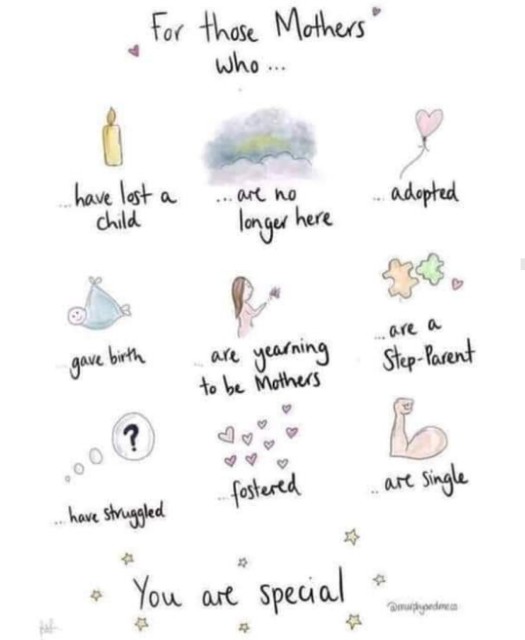 For those Mothers
who ...
...have lost a
child
... are no
longer here
... adopted
gave birth
.. are yearning
to be Mothers
... are a
Step-Parent
... have struggled
... fostered
.. are single
You are special